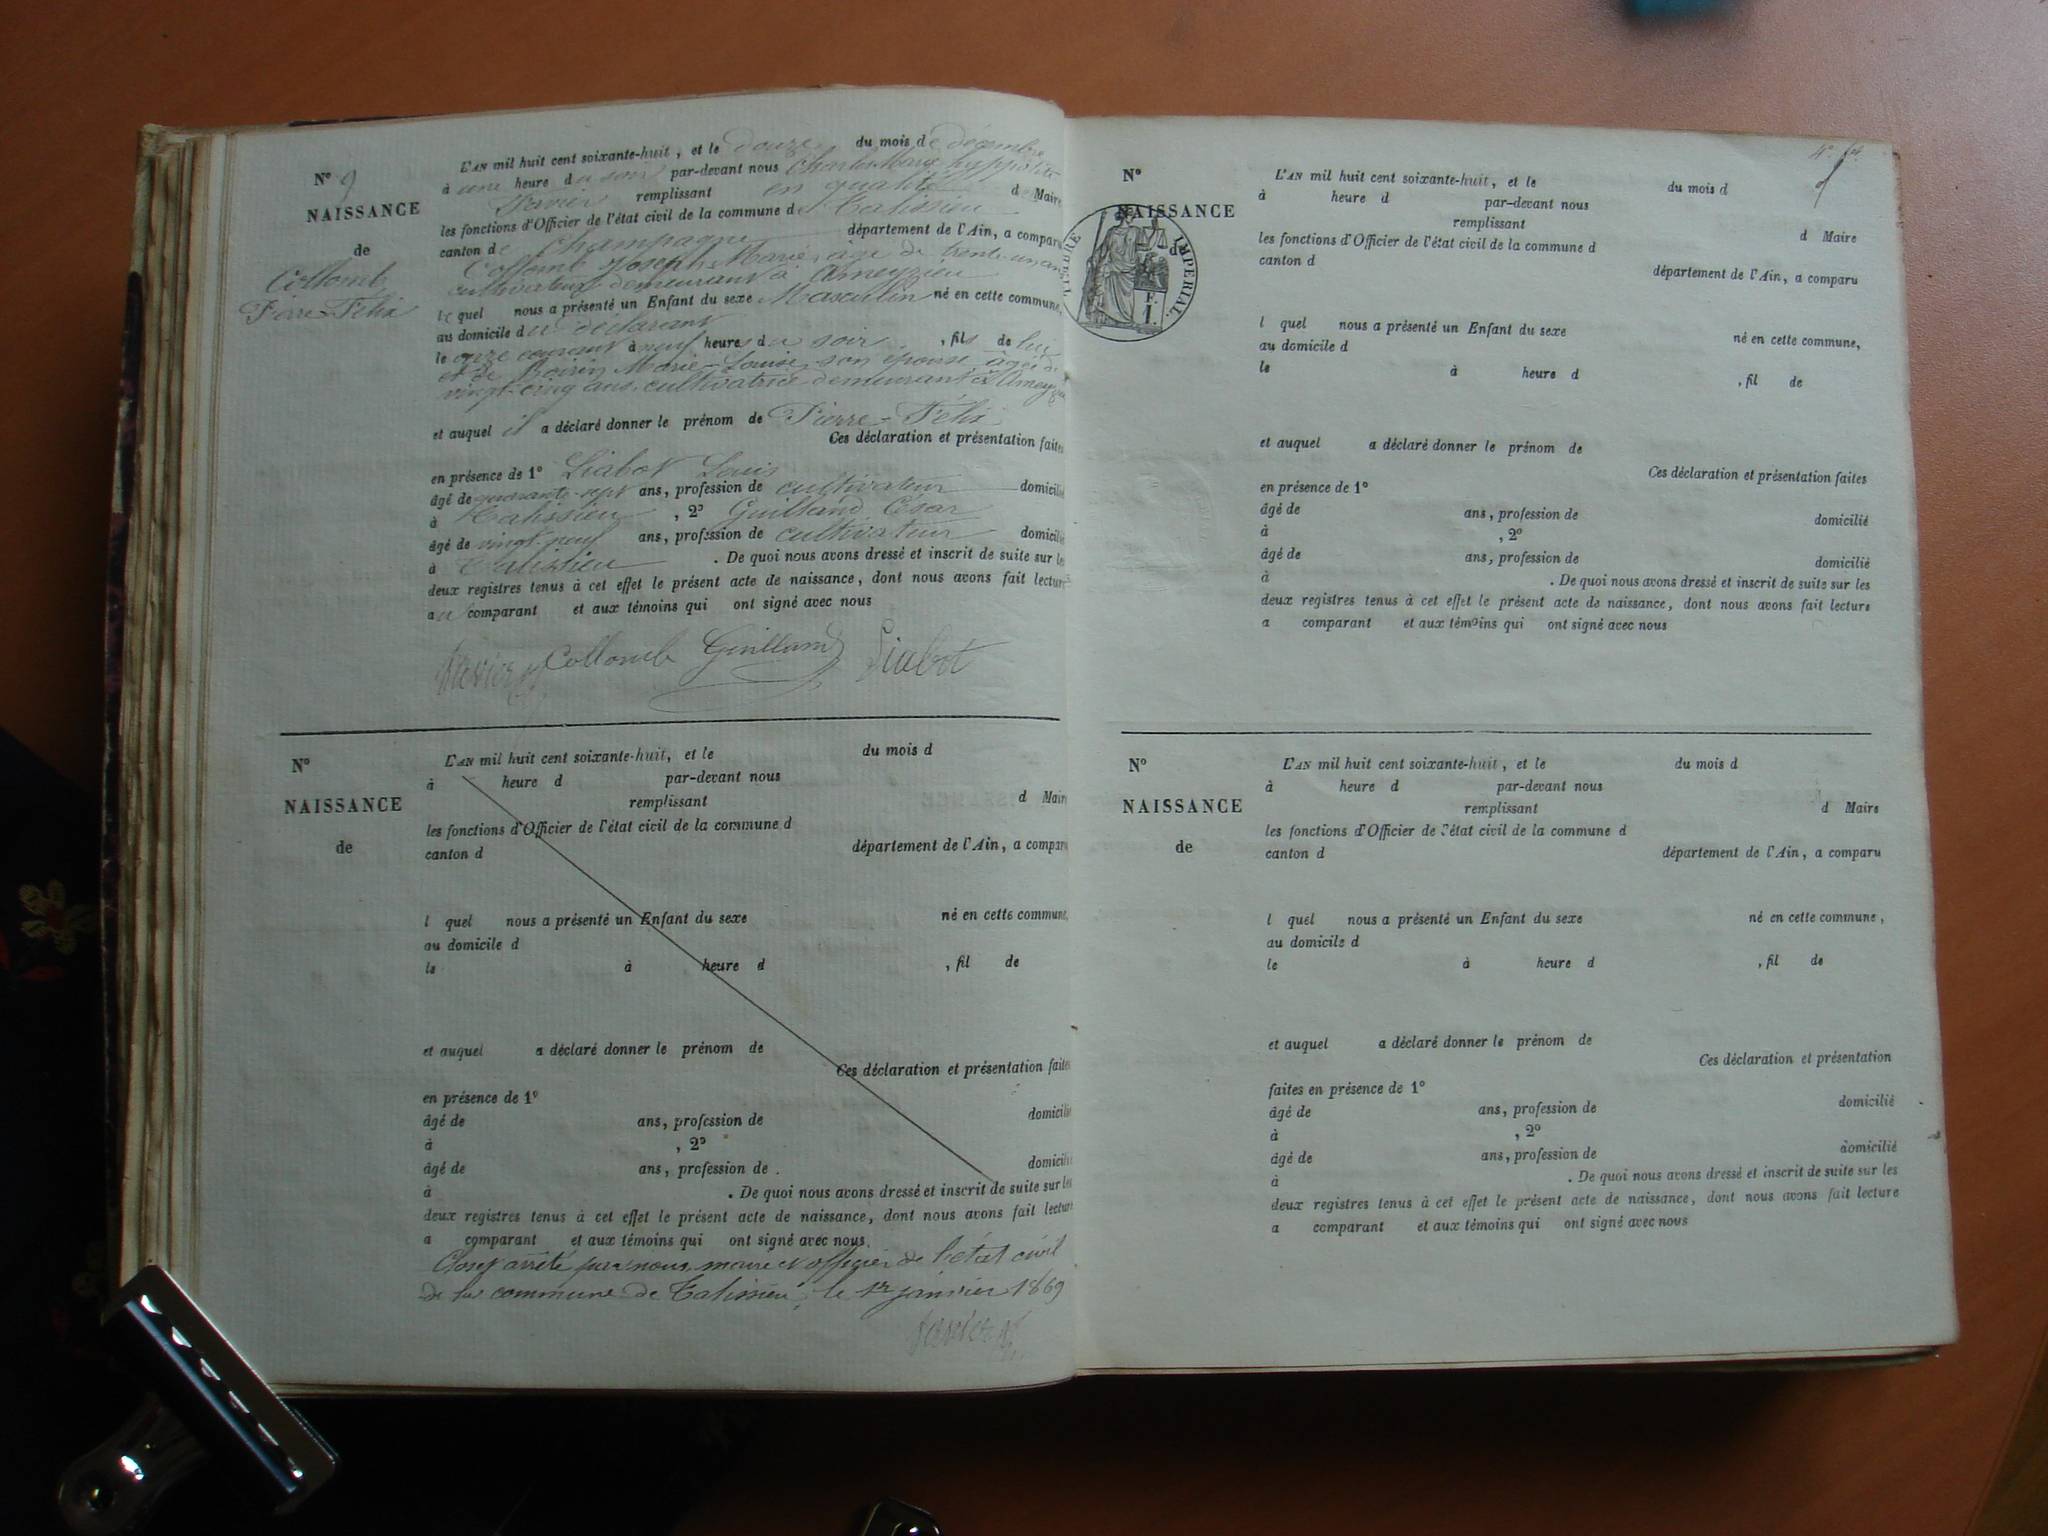 N° 9
NAISSANCE
de
Collomb
Pierre-Félix
L'AN mil huit cent soixante-huit, et le douze du mois de décembre
à une heure du soir par-devant nous Charles Marie hyppolite
remplissant en qualité de Maire
les fonctions d'Officier de l'état civil de la commune de Talissieu
canton de Champagne département de l'Ain, a comparu
Collomb Joseph-Marie, âgé de trente-un ans
cultivateur demeurant à Ameyzieu
lequel nous a présenté un Enfant du sexe Masculin né en cette commune,
au domicile du déclarant
le onze courant à neuf heures du soir, fils de lui
et de Marie-Louise, son épouse, âgée de
vingt-cinq ans, cultivatrice demeurant à Ameyzieu
et auquel il a déclaré donner le prénom de Pierre-Félix
Ces déclaration et présentation faites
en présence de 1° Liabot Louis
âgé de quarante-sept ans, profession de cultivateur domicilié
à Talissieu, 2° Guilland César
âgé de vingt-neuf ans, profession de cultivateur domicilié
à Talissieu. De quoi nous avons dressé et inscrit de suite sur les
deux registres tenus à cet effet le présent acte de naissance, dont nous avons fait lecture
au comparant et aux témoins qui ont signé avec nous
Collomb Guilland Liabot
N°
NAISSANCE
de
L'AN mil huit cent soixante-huit, et le du mois d
à heure d par-devant nous
remplissant d Maire
les fonctions d'Officier de l'état civil de la commune d
canton d département de l'Ain, a comparu
l quel nous a présenté un Enfant du sexe né en cette commune,
au domicile d
le à heure d , fil de
et auquel a déclaré donner le prénom de
Ces déclaration et présentation faites
en présence de 1°
âgé de ans, profession de domicilié
à , 2°
âgé de ans, profession de domicilié
à . De quoi nous avons dressé et inscrit de suite sur les
deux registres tenus à cet effet le présent acte de naissance, dont nous avons fait lecture
a comparant et aux témoins qui ont signé avec nous
Clos et arrêté par nous, maire et officier de l'état civil
de la commune de Talissieu, le 1er janvier 1869
N°
NAISSANCE
de
TIMBRE IMPERIAL
F.
1.
L'AN mil huit cent soixante-huit, et le du mois d
à heure d par-devant nous
remplissant d Maire
les fonctions d'Officier de l'état civil de la commune d
canton d département de l'Ain, a comparu
l quel nous a présenté un Enfant du sexe né en cette commune,
au domicile d
le à heure d , fil de
et auquel a déclaré donner le prénom de
Ces déclaration et présentation faites
en présence de 1°
âgé de ans, profession de domicilié
à , 2°
âgé de ans, profession de domicilié
à . De quoi nous avons dressé et inscrit de suite sur les
deux registres tenus à cet effet le présent acte de naissance, dont nous avons fait lecture
a comparant et aux témoins qui ont signé avec nous
N°
NAISSANCE
de
L'AN mil huit cent soixante-huit, et le du mois d
à heure d par-devant nous
remplissant d Maire
les fonctions d'Officier de l'état civil de la commune d
canton d département de l'Ain, a comparu
l quel nous a présenté un Enfant du sexe né en cette commune,
au domicile d
le à heure d , fil de
et auquel a déclaré donner le prénom de
Ces déclaration et présentation
faites en présence de 1°
âgé de ans, profession de domicilié
à , 2°
âgé de ans, profession de domicilié
à . De quoi nous avons dressé et inscrit de suite sur les
deux registres tenus à cet effet le présent acte de naissance, dont nous avons fait lecture
a comparant et aux témoins qui ont signé avec nous